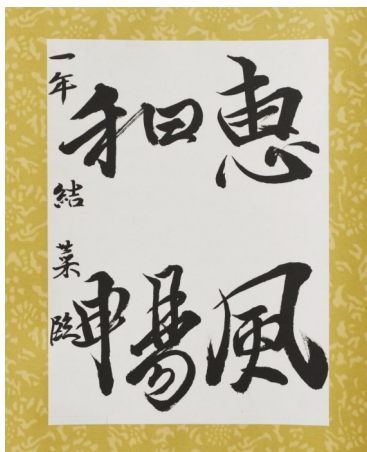 恵風
和暢
一年 結菜臨